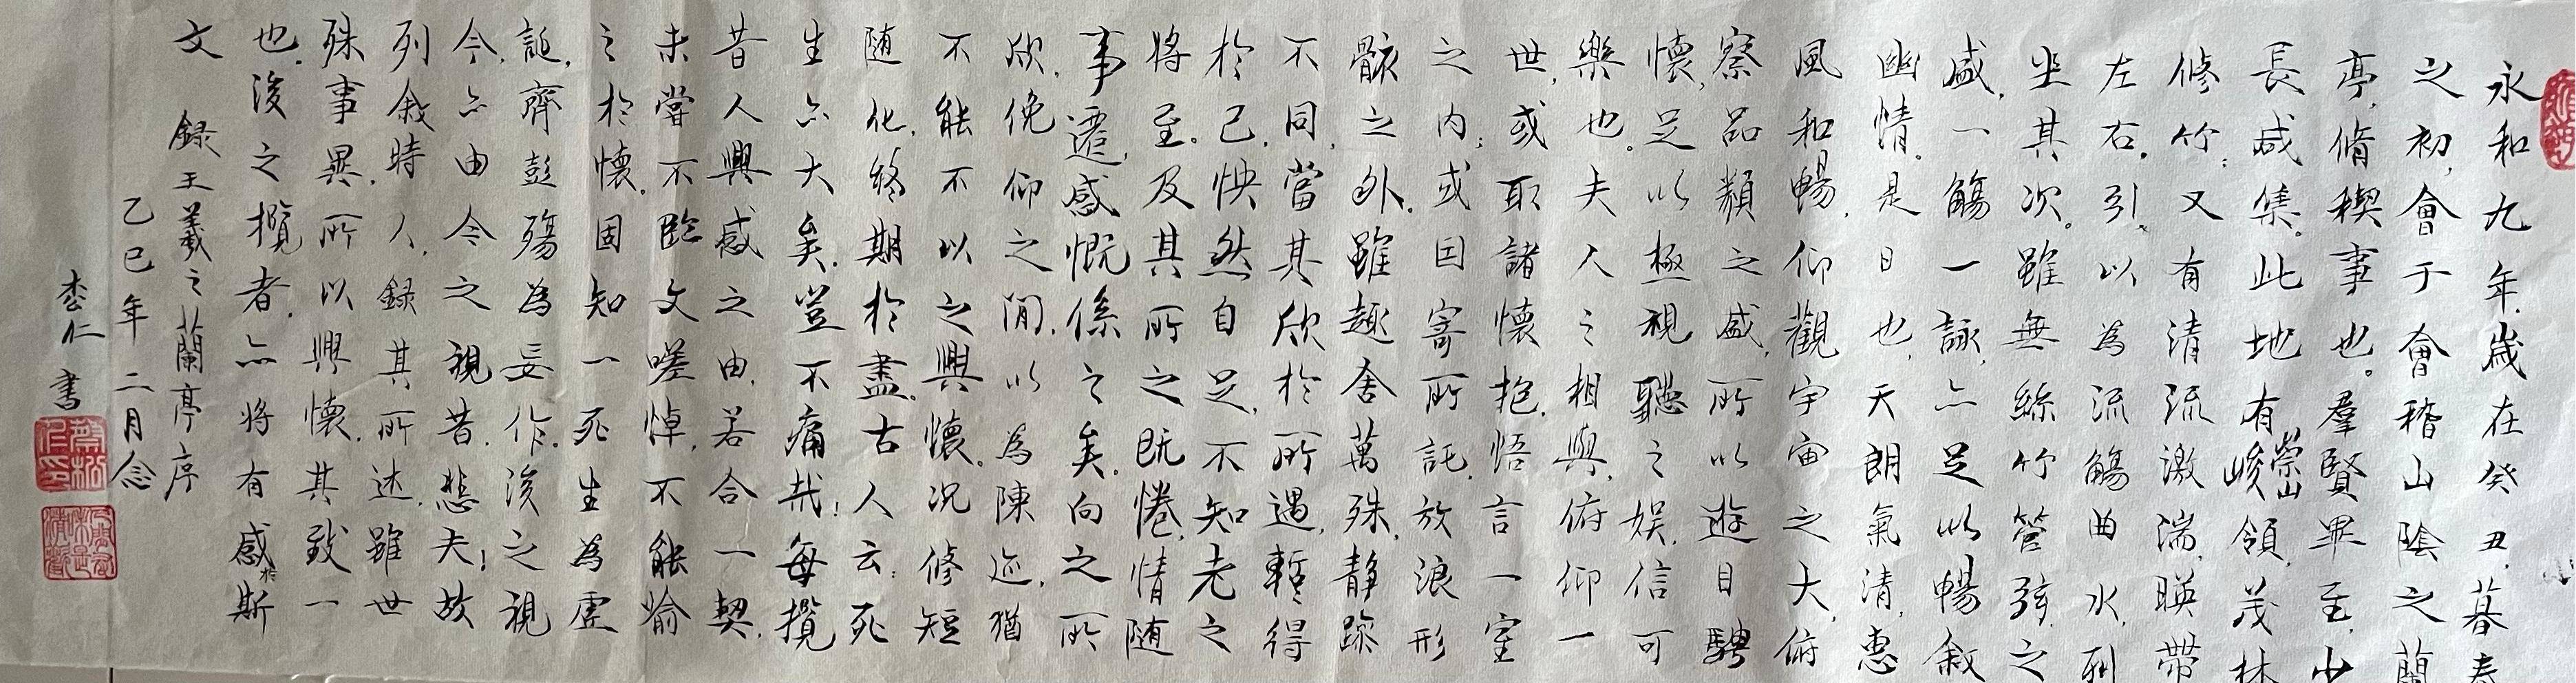 永和九年,歲在癸丑,暮春
之初,會于會稽山陰之蘭
亭,脩稧事也。羣賢畢至,少
長咸集。此地有崇山峻領,茂林
修竹;又有清流激湍,暎帶
左右,引以為流觴曲水,列
坐其次。雖無絲竹管弦之
盛,一觴一詠,亦足以暢敘
幽情。是日也,天朗氣清,惠
風和暢,仰觀宇宙之大,俯
察品類之盛,所以遊目騁
懷,足以極視聽之娛,信可
樂也。夫人之相與,俯仰一
世,或取諸懷抱,悟言一室
之內;或因寄所託,放浪形
骸之外。雖趣舍萬殊,静躁
不同,當其欣於所遇,暫得
於己,怏然自足,不知老之
將至。及其所之既惓,情随
事遷,感慨係之矣。向之所
欣,俛仰之閒,以為陳迹,猶
不能不以之興懷。況修短
随化,終期於盡。古人云:死
生亦大矣。豈不痛哉!每攬
昔人興感之由,若合一契,
未嘗不臨文嗟悼,不能喻
之於懷。固知一死生為虛
誕,齊彭殤為妄作。後之視
今,亦由今之視昔。悲夫!故
列敘時人,錄其所述,雖世
殊事異,所以興懷,其致一
也。後之攬者,亦将有感於斯
文 録王羲之蘭亭序
乙巳年二月念
李仁书